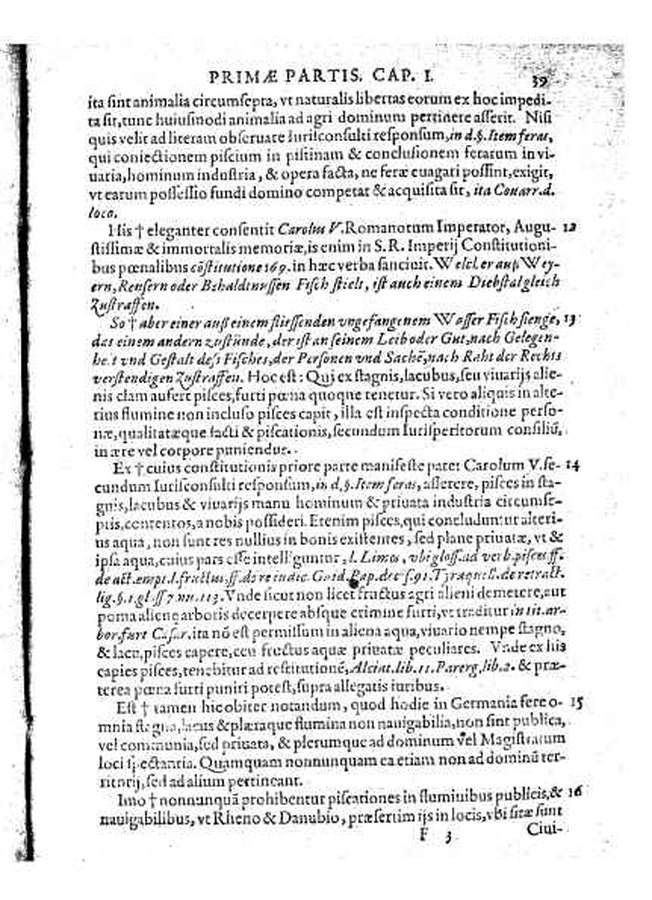 PRIMÆ PARTIS. CAP. I. 39
ita sint animalia circumsepta, vt naturalis libertas eorum ex hoc impedi-
ta sit, tunc huiusmodi animalia ad agri dominum pertinere asserit. Nisi
quis velit ad literam obseruare Iurisconsulti responsum, in d.§. Item feras,
qui coniectionem piscium in piscinam & conclusionem ferarum in vi-
uaria, hominum industria, & opera facta, ne feræ euagari possint, exigit,
vt earum possessio fundi domino competat & acquisita sit, ita Couarr. d.
loco.
His † eleganter consentit Carolus V. Romanorum Imperator, Augu- 12
stissimæ & immortalis memoriæ, is enim in S. R. Imperij Constitutioni-
bus pœnalibus cōstitutione 169. in hæc verba sanciuit. Welcher auß Wey-
ern, Reusern oder Behaldtnussen Fisch stielt, ist auch einem Diebstal gleich
Zustraffen.
So † aber einer auß einem fliessenden vngefangenem Wasser Fisch fienge, 13
das einem andern zustünde, der ist an seinem Leib oder Gut, nach Gelegen-
heit vnd Gestalt deß Fisches, der Personen vnd Sachē, nach Raht der Rechts
verstendigen Zustraffen. Hoc est: Qui ex stagnis, lacubus, seu viuarijs alie-
nis clam aufert pisces, furti pœna quoque tenetur. Si vero aliquis in alte-
rius flumine non incluso pisces capit, illa est inspecta conditione perso-
næ, qualitatæque facti & piscationis, secundum Iurisperitorum consiliū,
in ære vel corpore puniendus.
Ex † cuius constitutionis priore parte manifeste patet Carolum V. se- 14
cundum Iurisconsulti responsum, in d.§. Item feras, asserere, pisces in sta-
gnis, lacubus & viuarijs manu hominum & priuata industria circumse-
ptis, contentos, a nobis possideri. Etenim pisces, qui concluduntur alteri-
us aqua, non sunt res nullius in bonis existentes, sed plane priuatæ, vt &
ipsa aqua, cuius pars esse intelliguntur, l. Limos, vbi gloss. ad verb. pisces ff.
de act. empt. l. fructus, ff. de re iudic. Guid. Pap. dec. 591. Tyraquell. de retract.
lig. §. 1. gl. ff 7. nu. 113. Vnde sicut non licet fructus agri alieni demetere, aut
poma alienæ arboris decerpere absque crimine furti, vt traditur in tit. ar-
bor. furt. Cæsar. ita nō est permissum in aliena aqua, viuario nempe stagno,
& lacu, pisces capere, ceu fructus aquæ priuatæ peculiares. Vnde ex his
capies pisces, tenebitur ad restitutionē, Alciat. lib. 11. Parerg. lib. 2. & præ-
terea pœna furti puniri potest, supra allegatis iuribus.
Est † tamen hic obiter notandum, quod hodie in Germania fere o- 15
mnia stagna, lacus & plæraque flumina non nauigabilia, non sint publica,
vel communia, sed priuata, & plerumque ad dominum vel Magistratum
loci spectantia. Quamquam nonnunquam ea etiam non ad dominū ter-
ritorij, sed ad alium pertineant.
Imo † nonnunquā prohibentur piscationes in fluminibus publicis, & 16
nauigabilibus, vt Rheno & Danubio, præsertim ijs in locis, vbi sitæ sunt
F 3 Ciui-